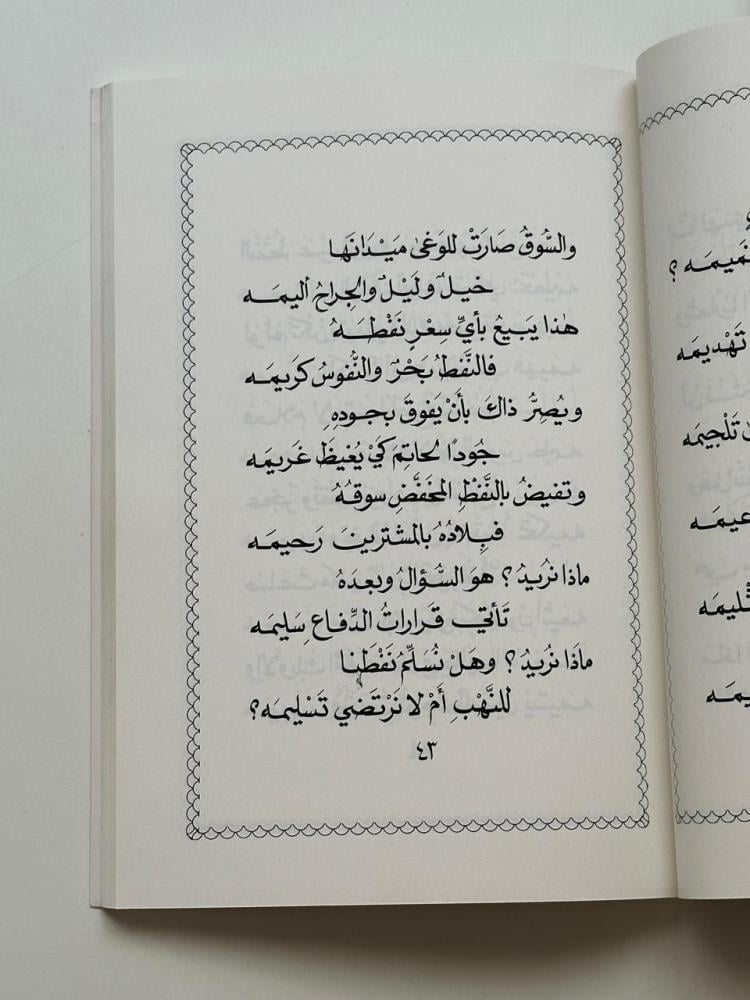 والسُّوقُ صَارَتْ للوَغىٰ ميَدْانَهَا
خيلٌ وليْلٌ والجِراحُ أليمَه
هٰذا يَبيعُ بأيِّ سِعْرٍ نَفْطَهُ
فالنَّفْطُ بَحْرٌ والنُّفوسُ كَرَيمَه
ويُصِرُّ ذاكَ بأنْ يَفوقَ بجودِهِ
جُودًا لحاتِم كَيْ يُغيظَ غَريمَه
وتفيضُ بالنَّفْطِ المخَفَّضِ سوقُهُ
فبِلادُهُ بالمشترينَ رَحيمَه
ماذا نرُيدُ؟ هوَ السُّؤالُ وبعدَهُ
تَأتي قَراراتُ الدِّفاعِ سَليمَه
ماذَا نرُيدُ؟ وهَلْ نُسَلِّمُ نَفْطَنا
للنَّهْبِ أمْ لا نَرْتَضي تَسْليمَه؟
٤٣
نَميمَه؟
تَهْديمَه
تَلْجيمَه